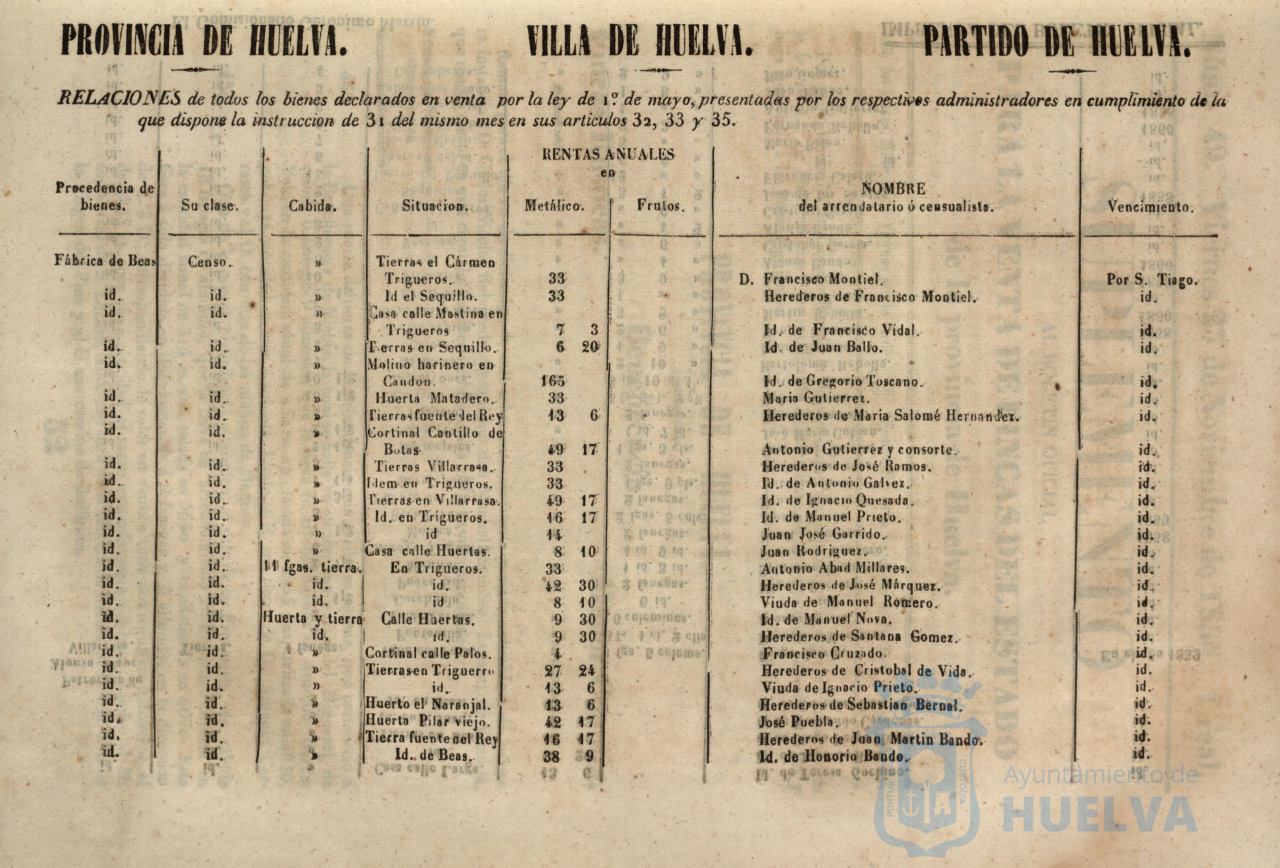 PROVINCIA DE HUELVA. VILLA DE HUELVA. PARTIDO DE HUELVA.
RELACIONES de todos los bienes declarados en venta por la ley de 1º de mayo, presentadas por los respectivos administradores en cumplimiento de la
que dispone la instruccion de 31 del mismo mes en sus articulos 32, 33 y 35.
RENTAS ANUALES
en
Procedencia de bienes. Su clase. Cabida. Situacion. Metálico. Frutos. NOMBRE del arrendatario ó censualista. Vencimiento.
Fábrica de Beas Censo. » Tierras el Cármen
Trigueros. 33 D. Francisco Montiel. Por S. Tiago.
id. id. » Id el Sequillo. 33 Herederos de Francisco Montiel. id.
id. id. » Casa calle Mastina en
Trigueros 7 3 Id. de Francisco Vidal. id.
id. id. » Tierras en Sequillo. 6 20 Id. de Juan Ballo. id.
id. id. » Molino harinero en
Candon. 165 Id. de Gregorio Toscano. id.
id. id. » Huerta Matadero. 33 Maria Gutierrez. id.
id. id. » Tierras fuente del Rey 13 6 Herederos de Maria Salomé Hernandez. id.
id. id. » Cortinal Cantillo de
Botas 49 17 Antonio Gutierrez y consorte. id.
id. id. » Tierras Villarrasa. 33 Herederos de José Ramos. id.
id. id. » Idem en Trigueros. 33 Id. de Antonio Galvez. id.
id. id. » Tierras en Villarrasa. 49 17 Id. de Ignacio Quesada. id.
id. id. » Id. en Trigueros. 16 17 Id. de Manuel Prieto. id.
id. id. » id 14 Juan José Garrido. id.
id. id. » Casa calle Huertas. 8 10 Juan Rodriguez. id.
id. id. 11 fgas. tierra. En Trigueros. 33 Antonio Abad Millares. id.
id. id. id. id. 42 30 Herederos de José Márquez. id.
id. id. id. id 8 10 Viuda de Manuel Romero. id.
id. id. Huerta y tierra Calle Huertas. 9 30 Id. de Manuel Nova. id.
id. id. id. id. 9 30 Herederos de Santana Gomez. id.
id. id. » Cortinal calle Palos. 4 Francisco Cruzado. id.
id. id. » Tierras en Triguerro 27 24 Herederos de Cristobal de Vida. id.
id. id. » id. 13 6 Viuda de Ignacio Prieto. id.
id. id. » Huerto el Naranjal. 13 6 Herederos de Sebastian Bernal. id.
id. id. » Huerta Pilar viejo. 42 17 José Puebla. id.
id. id. » Tierra fuente del Rey 16 17 Herederos de Juan Martin Bando. id.
id. id. » Id. de Beas. 38 9 Id. de Honorio Bando. id.
Ayuntamiento de
HUELVA